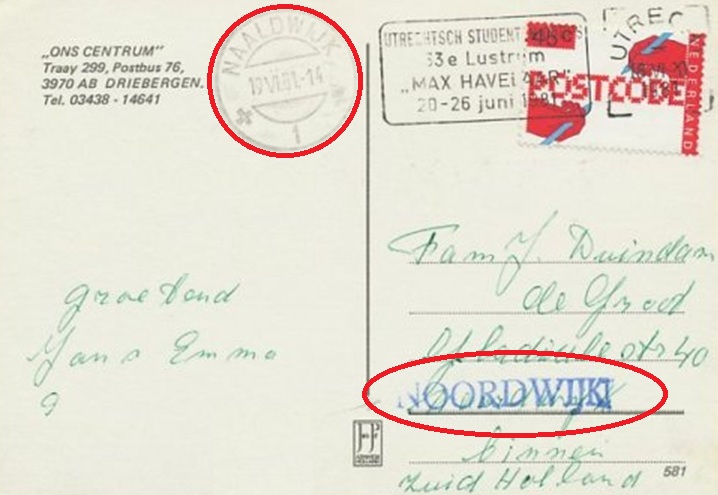 „ONS CENTRUM"
Traay 299, Postbus 76,
3970 AB DRIEBERGEN.
Tel. 03438 - 14641
NAALDWIJK
19 VI 81.-14
1
UTRECHTSCH STUDENT
33e Lustrum
„MAX HAVELAAR"
20-26 juni 1981
UTREC
45c
POSTCODE
NEDERLAND
Fam J. Duindam
de Groot
str 40
NOORDWIJK
binnen
Zuid Holland
groetend
Jans Emma
JHP
581